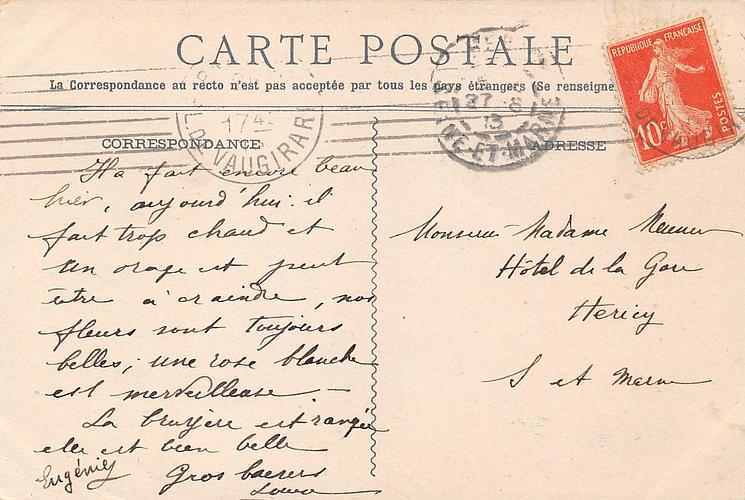 CARTE POSTALE
La Correspondance au recto n'est pas acceptée par tous les pays étrangers (Se renseigne
RÉPUBLIQUE FRANÇAISE
10c POSTES
1745
D. VAUGIRARD
27 8
13
SEINE-ET-MARNE
CORRESPONDANCE
ADRESSE
Il a fait encore beau
hier, aujourd'hui il
fait trop chaud et
un orage est peut
être à craindre, nos
fleurs sont toujours
belles, une rose blanche
est merveilleuse. —
La bruyère est rangée
elle est bien belle
Eugénie Gros baisers
Monsieur Madame
Hôtel de la Gare
Hericy
S et Marne